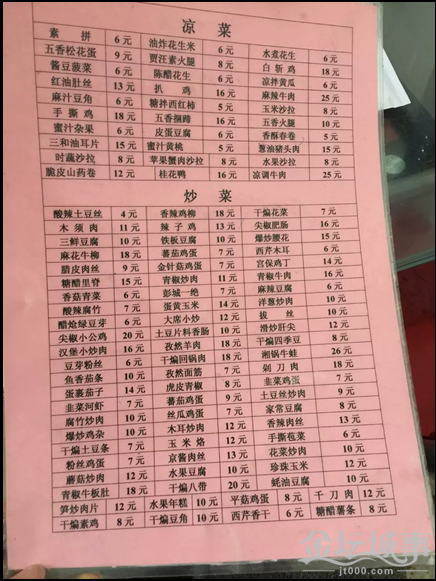 凉菜
素拼 6元 油炸花生米 6元 水煮花生 6元
五香松花蛋 9元 贾汪素火腿 8元 白斩鸡 18元
酱豆菠菜 6元 陈醋花生 6元 凉拌黄瓜 6元
红油肚丝 13元 扒鸡 16元 麻辣牛肉 25元
麻汁豆角 6元 糖拌西红柿 5元 玉米沙拉 8元
手撕鸡 18元 五香捆蹄 16元 五香火腿 10元
蜜汁杂果 6元 皮蛋豆腐 6元 香酥春卷 5元
三和油耳片 15元 蜜汁黄桃 5元 葱油猪头肉 15元
时蔬沙拉 8元 苹果蟹肉沙拉 8元 水果沙拉 8元
脆皮山药卷 12元 桂花鸭 16元 凉调牛肉 25元
炒菜
酸辣土豆丝 4元 香辣鸡柳 18元 干煸花菜 7元
木须肉 11元 辣子鸡 13元 尖椒肥肠 16元
三鲜豆腐 10元 铁板豆腐 10元 爆炒腰花 15元
麻花牛柳 18元 蕃茄鸡蛋 7元 西芹木耳 6元
腊皮肉丝 9元 金针菇鸡蛋 7元 宫保鸡丁 14元
糖醋里脊 15元 青椒炒肉 11元 青椒牛肉 16元
香菇青菜 6元 彭城一绝 7元 麻辣豆腐 6元
酸辣腐竹 7元 蛋黄玉米 14元 洋葱炒肉 10元
醋烩绿豆芽 6元 大席小炒 12元 拔丝 10元
尖椒小公鸡 20元 土豆片料香肠 10元 滑炒肝尖 12元
汉堡小炒肉 16元 孜然羊肉 18元 干煸四季豆 8元
豆芽粉丝 6元 干煸回锅肉 18元 湘锅牛蛙 26元
鱼香茄条 10元 孜然面筋 7元 剁刀肉 18元
蛋裹茄子 14元 虎皮青椒 8元 韭菜鸡蛋 7元
韭菜河虾 7元 蕃茄鸡蛋 9元 土豆丝炒肉 9元
腐竹炒肉 10元 丝瓜鸡蛋 7元 家常豆腐 8元
爆炒鸡杂 10元 木耳炒肉 12元 香辣肉丝 13元
干煸土豆条 7元 玉米烙 12元 手撕包菜 6元
粉丝鸡蛋 7元 京酱肉丝 13元 花菜炒肉 10元
蘑菇炒肉 12元 水果豆腐 10元 珍珠玉米 12元
青椒牛板肚 18元 干煸八带 20元 蚝油豆腐 10元
笋炒肉片 12元 水果年糕 10元 平菇鸡蛋 8元 千刀肉 12元
干煸素鸡 8元 干煸豆角 10元 西芹香干 6元 糖醋薯条 8元
金坛城事
jt000.com